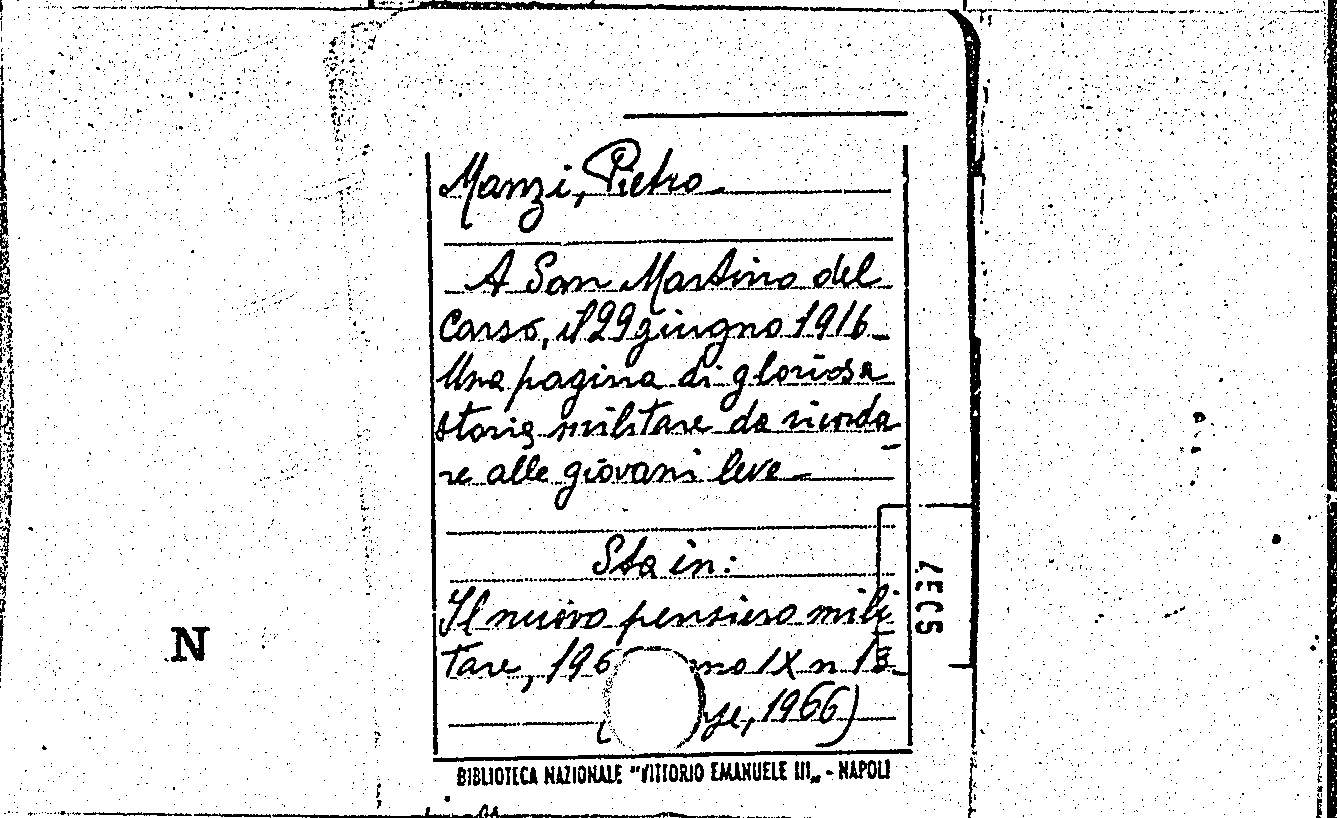 Manzi, Pietro
A San Martino del
Carso, il 29 giugno 1916
Una pagina di gloriosa
storia militare da ricorda
re alle giovani leve
Sta in:
Il nuovo pensiero mili
tare, 196 IX n 13
1966)
BIBLIOTECA NAZIONALE "VITTORIO EMANUELE III„ - NAPOLI
N